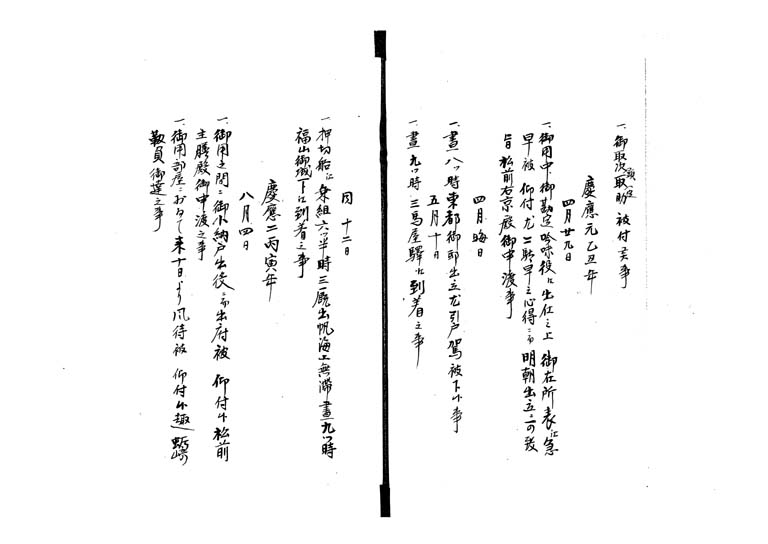 一、御取次頭取助被 仰付云事
慶應元乙丑年
四月廿九日
一、御用中御勘定吟味役ニ出仕之上 御在所表江急
早被 仰付尤二時早之心得ニ而明朝出立之可致
旨松前右京殿御申渡事
四月晦日
一、晝八ツ時東都御部出立尤引戸駕被下候事
五月十日
一、晝九ツ時三馬屋驛江到着之事
同 十二日
一、押切船江乗組六ツ半時三厩出帆海上無滞晝九ツ時
福山御城下江到着之事
慶應二丙寅年
八月四日
一、御用之間ニ御小納戸出役ニ而出府被 仰付候松前
主膳殿御申渡之事
一、御用部屋ニおゐて来十日より風待被 仰付候趣蛎崎
勘員御達之事